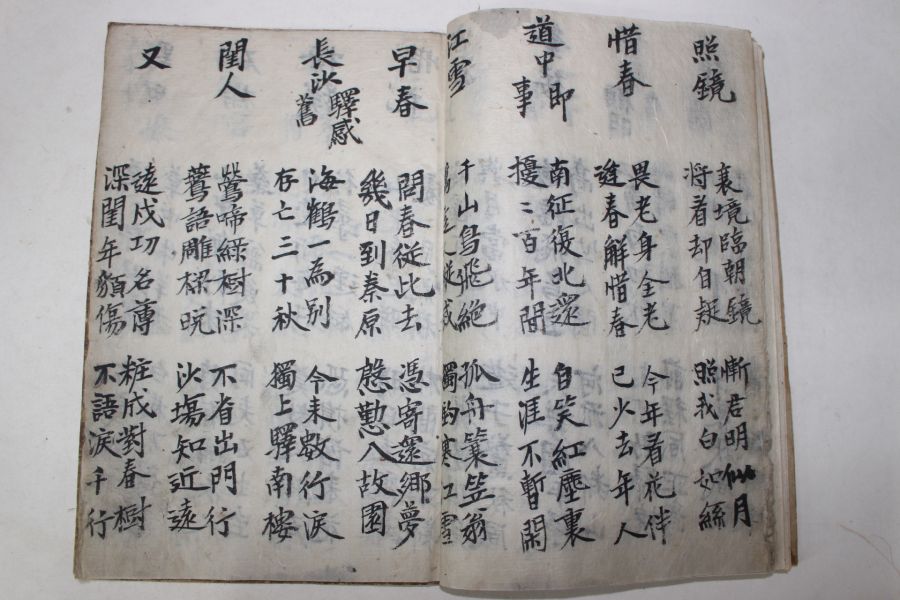 照鏡
衰境臨朝鏡
将看却自疑
慚君明似月
照我白如絲
惜春
畏老身全老
逢春解惜春
今年看花伴
已少去年人
道中即
事
南征復北還
擾〻百年間
自笑紅塵裏
生涯不暫閑
江雪
千山鳥飛絶
萬逕人蹤滅
孤舟簑笠翁
獨釣寒江雪
早春
問春從此去
幾日到秦原
憑寄還鄉夢
慇懃入故園
長沙驛感
舊
海鶴一為別
存亡三十秋
今来數行淚
獨上驛南樓
閨人
鶯啼綠樹深
鷰語雕樑晚
不省出門行
沙塲知近遠
又
遠戍功名薄
深閨年貌傷
粧成對春樹
不語淚千行